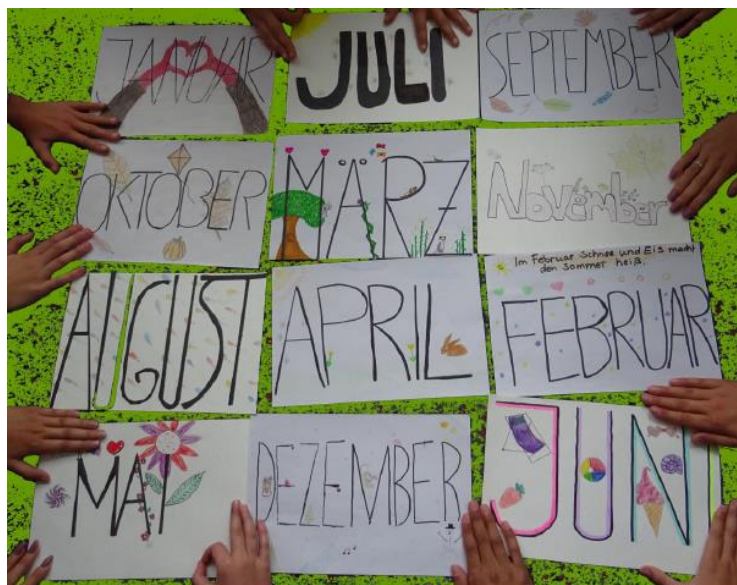 JANUAR
JULI
SEPTEMBER
OKTOBER
MÄRZ
November
AUGUST
APRIL
Im Februar Schnee und Eis macht
den Sommer heiß.
FEBRUAR
MAI
DEZEMBER
JUNI